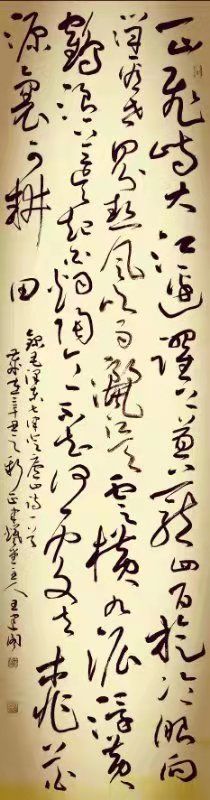 一山飛峙大江邊躍上葱蘢四百旋冷眼向
洋看世界熱風吹雨灑江天雲橫九派浮黃
鶴浪下三吳起白煙陶令不知何處去桃花
源裏可耕田
錄毛澤東七律登廬山詩一首
歲在辛丑之秋